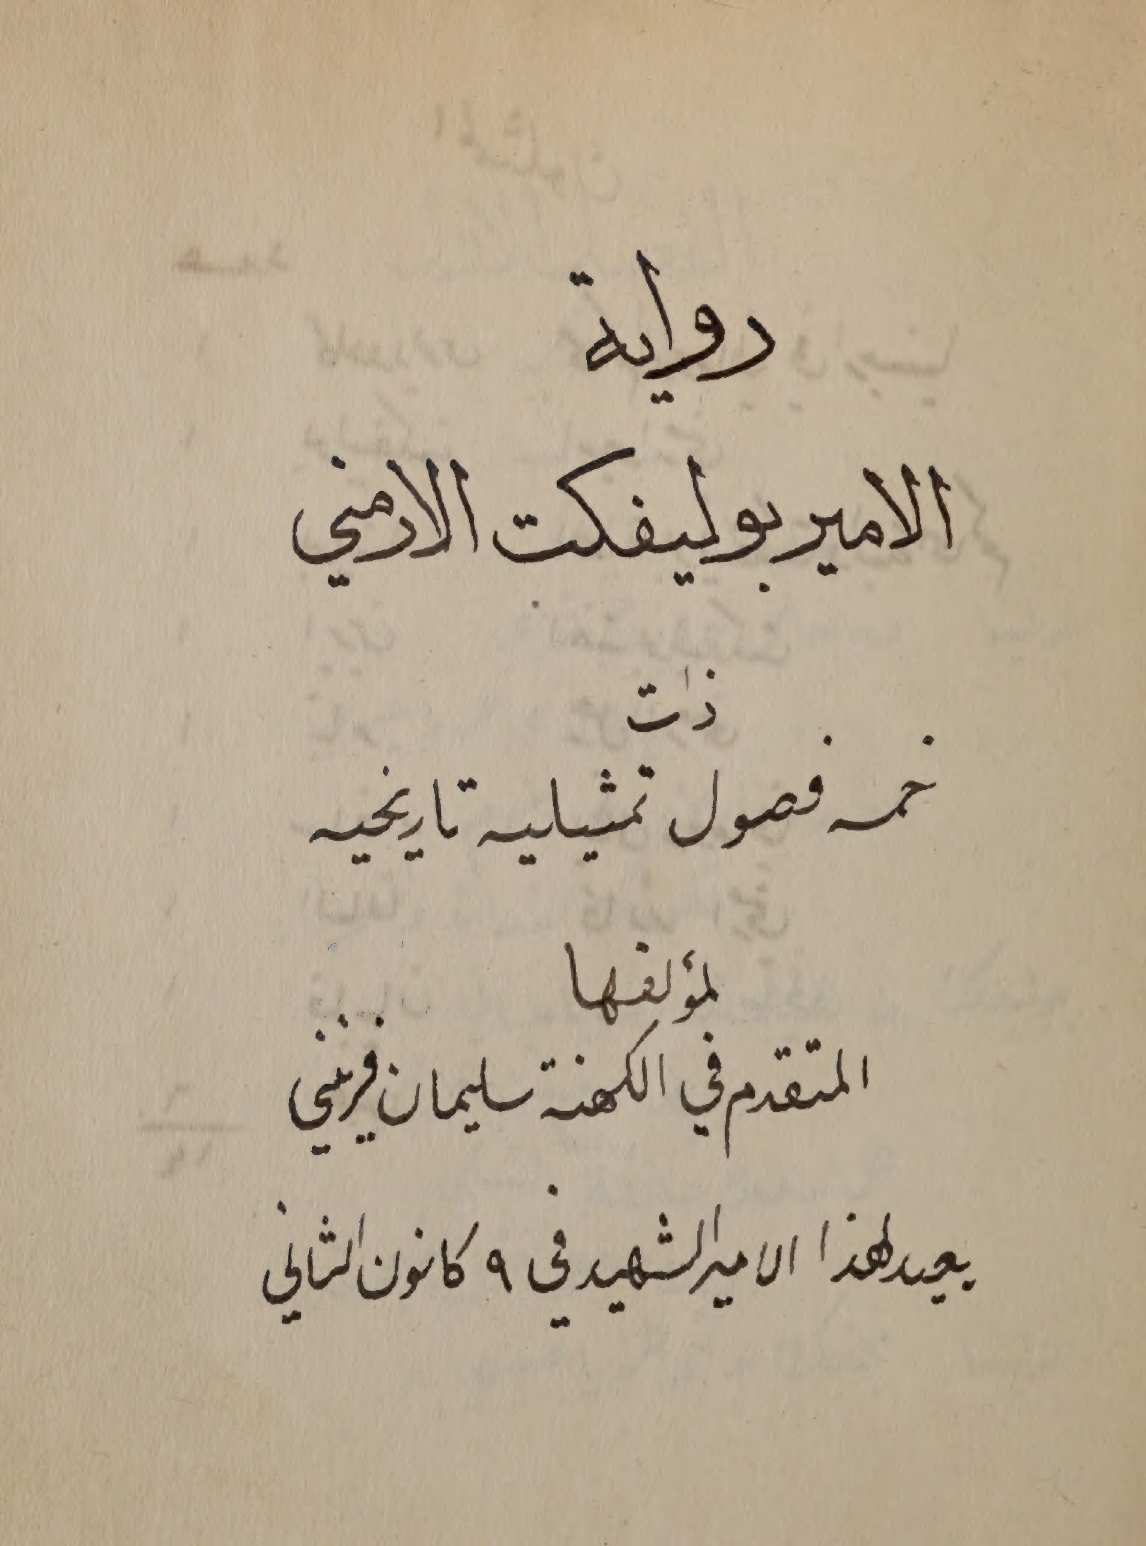 رواية
الامير بوليفكت الارمني
ذات
خمسه فصول تمثيليه تاريخيه
لمؤلفها
المتقدم في الكهنة سليمان فريني
يعيد لهذا الامير الشهيد في ٩ كانون الثاني